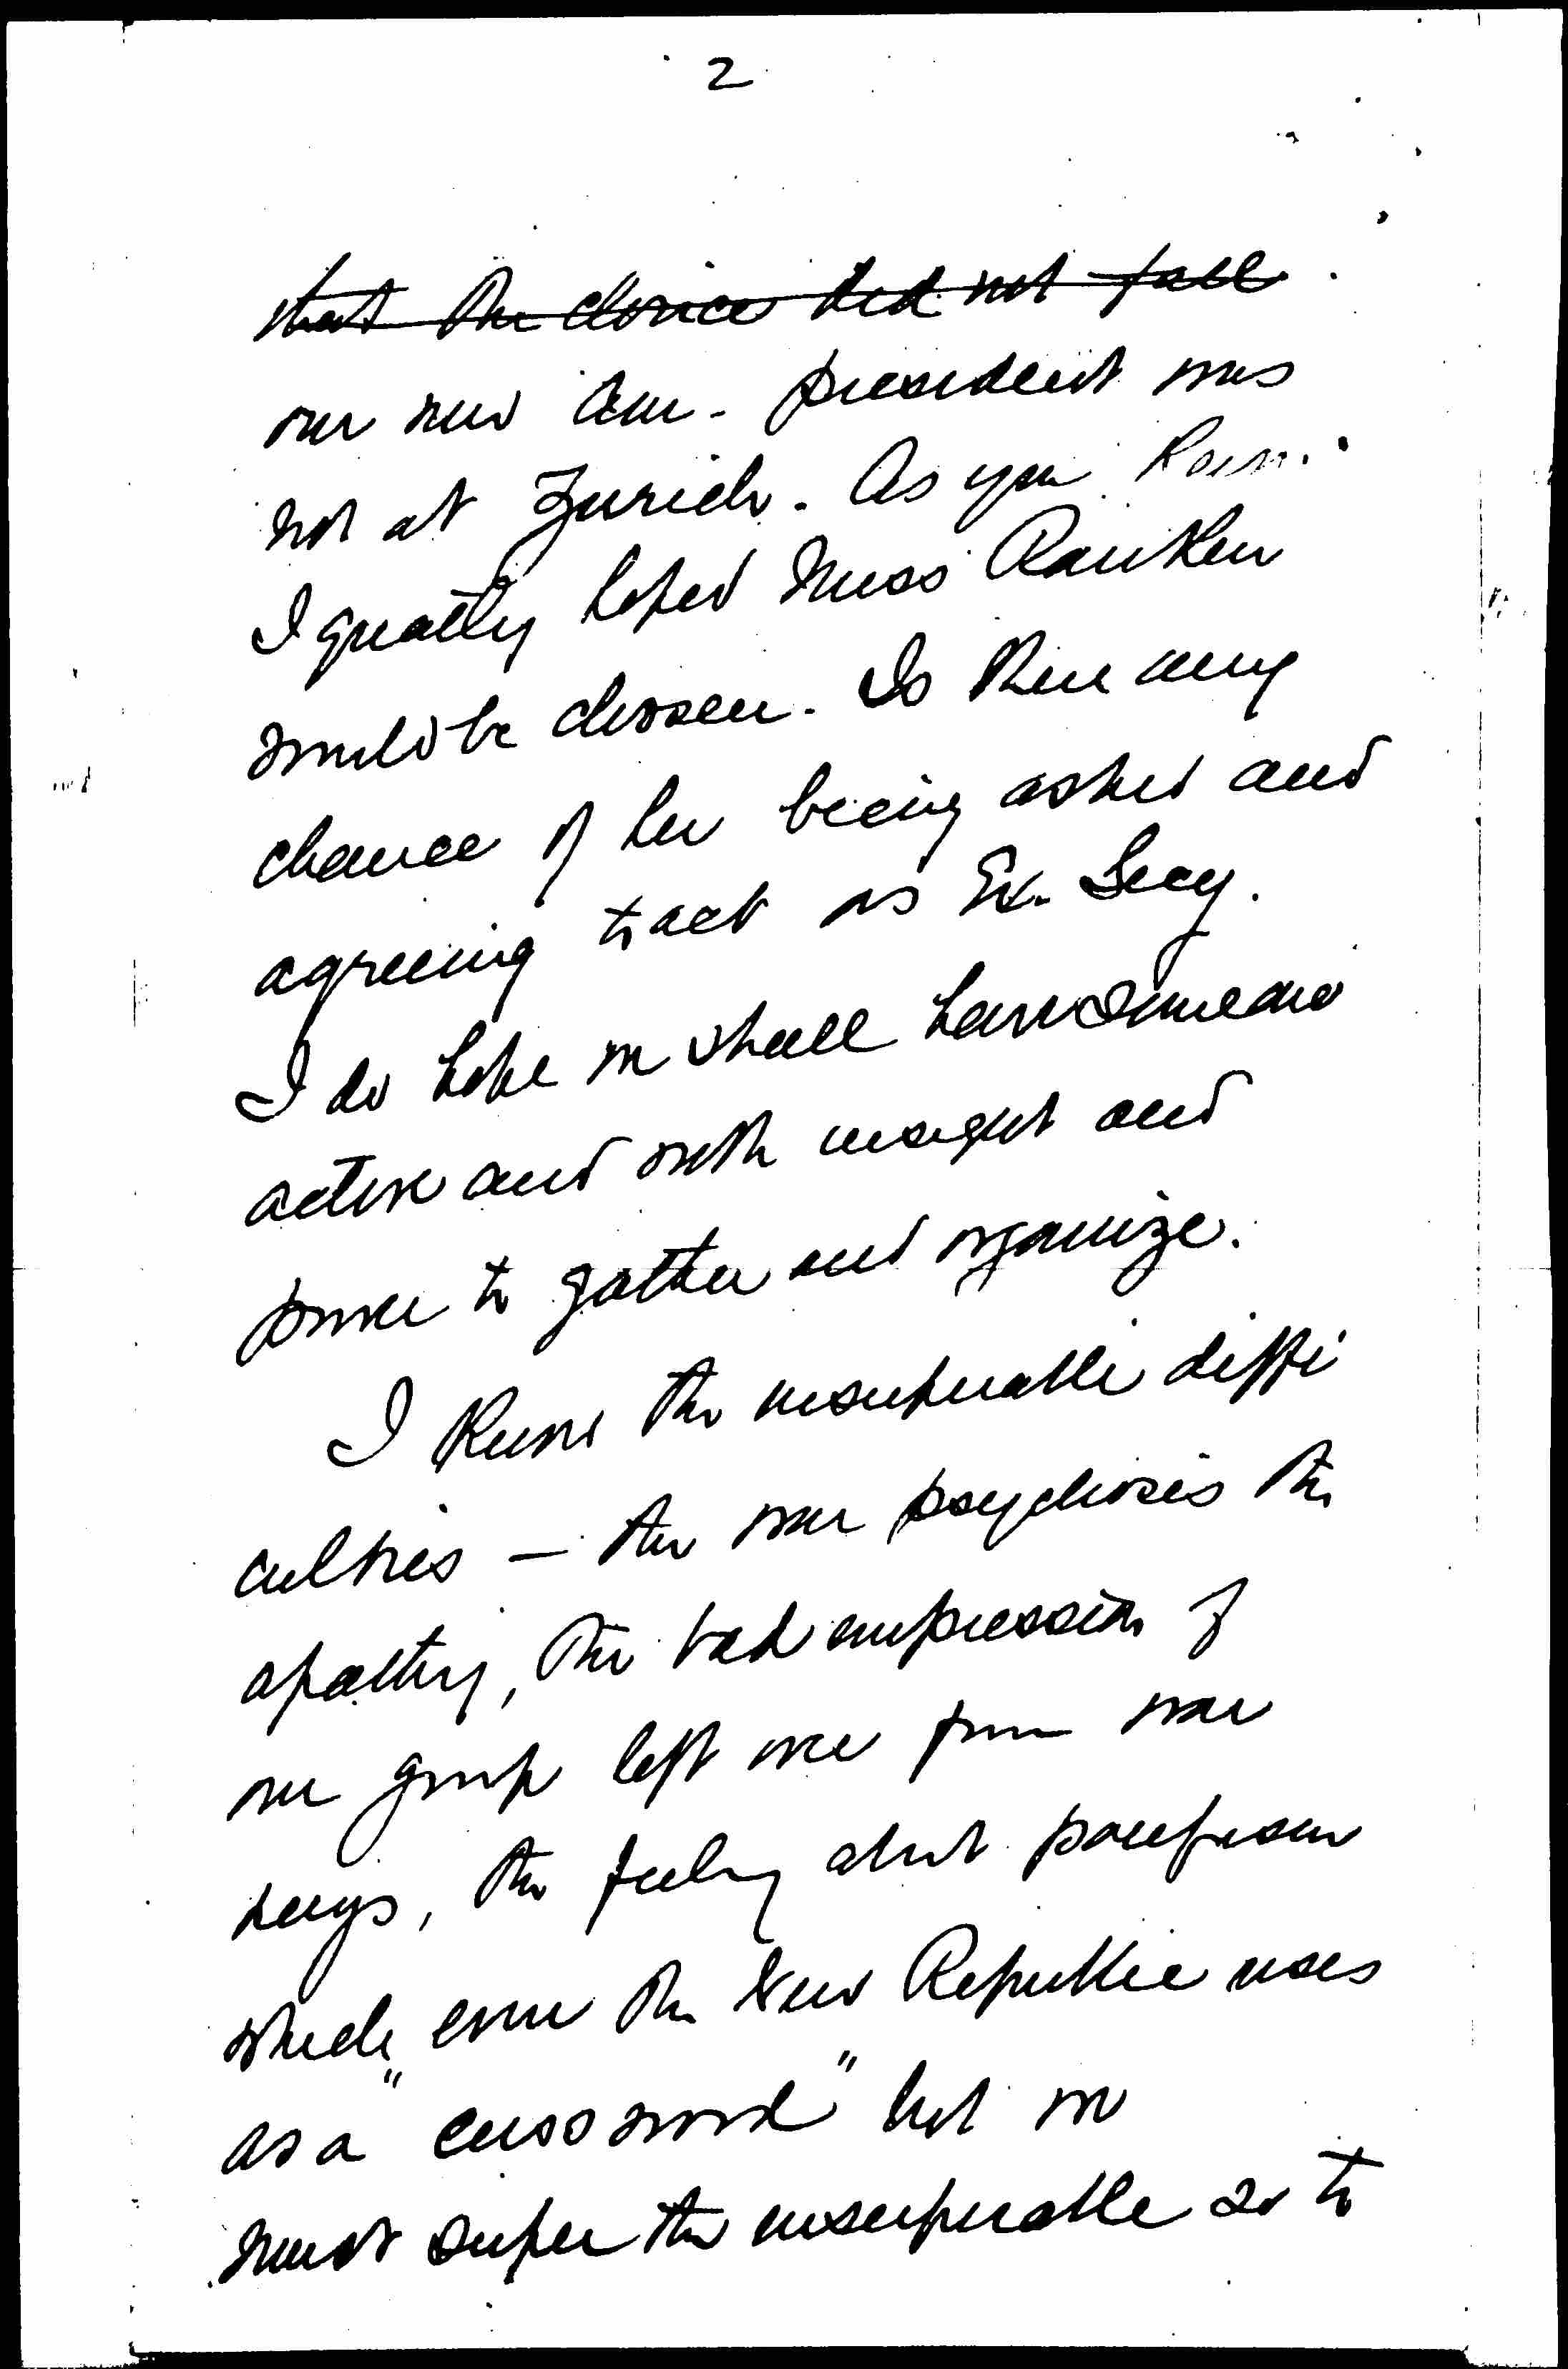 2
that the choice did not fall
our new Am. president was
not at Zurich. As you know
I greatly hoped Miss Rankin
would be chosen. Is there any
chance of her being asked and
agreeing to act as Ex. Secy.
I do hope we shall have someone
active and with insight and
power to gather and organize.
I know the insuperable diffi
culties — the war psychosis the
apathy, the bad impression of
our group left over from war
days, the feeling about pacifism
which even the New Republic uses
as a "cuss word" but we
must super the insuperable so to